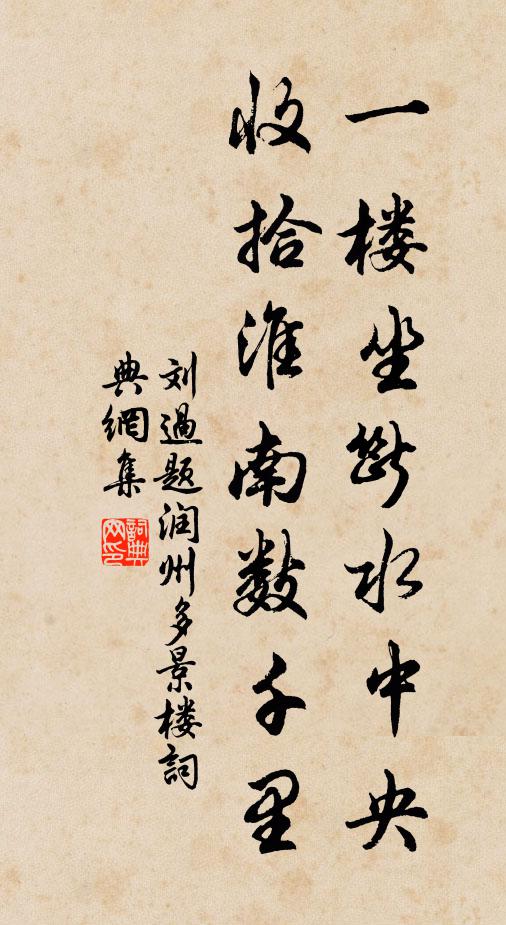 一楼坐断水中央
收拾淮南数千里
刘過题润州多景楼詞
典網集
詞典网印